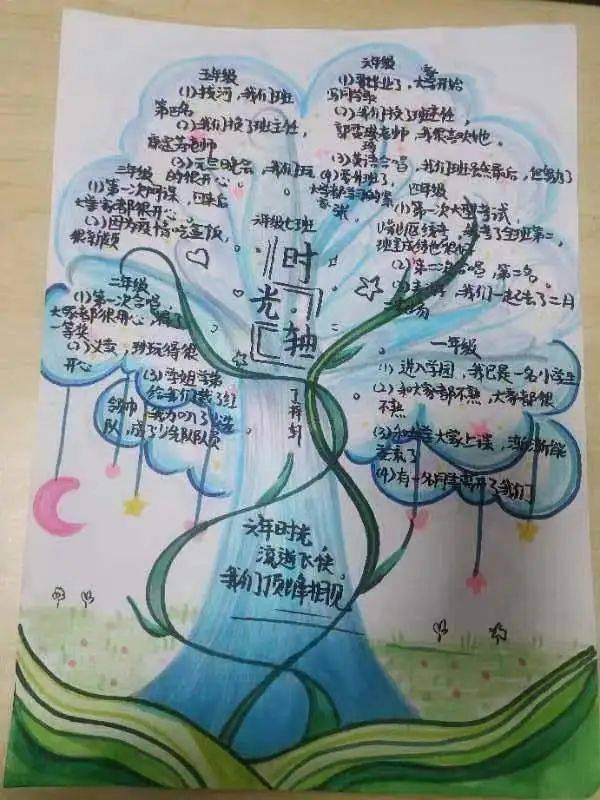 五年级
(1)拔河,我们班
第四名
(2)我们换了班主任,
老师
(3)元旦晚会,我们玩
的很开心。
六年级
(1)要毕业了,大家开始
写同学录
(2)我们换了班主任,
老师,我很喜欢她。
(3)英语合唱,我们班
三年级
(1)第一次网课,
大家都很开心
(2)因为疫情吃盒饭,
很新颖
六年级七班
时
光
轴
四年级
(1)第一次大型考试,
全班第二,
(2)第二次合唱,第二名。
我们一起去了二月
二年级
(1)第一次合唱,
大家都很开心,
一等奖
(2)义卖,玩得很
开心
(3)学姐学弟
给我们戴了红
领巾,
队,成了少先队队员
一年级
(1)进入学园,我已是一名小学生
(2)和大家都不熟,大家都很
不熟
(3)大家上课,渐渐能
(4)有一名同学离开了我们
六年时光
流逝飞快,
我们顶峰相见